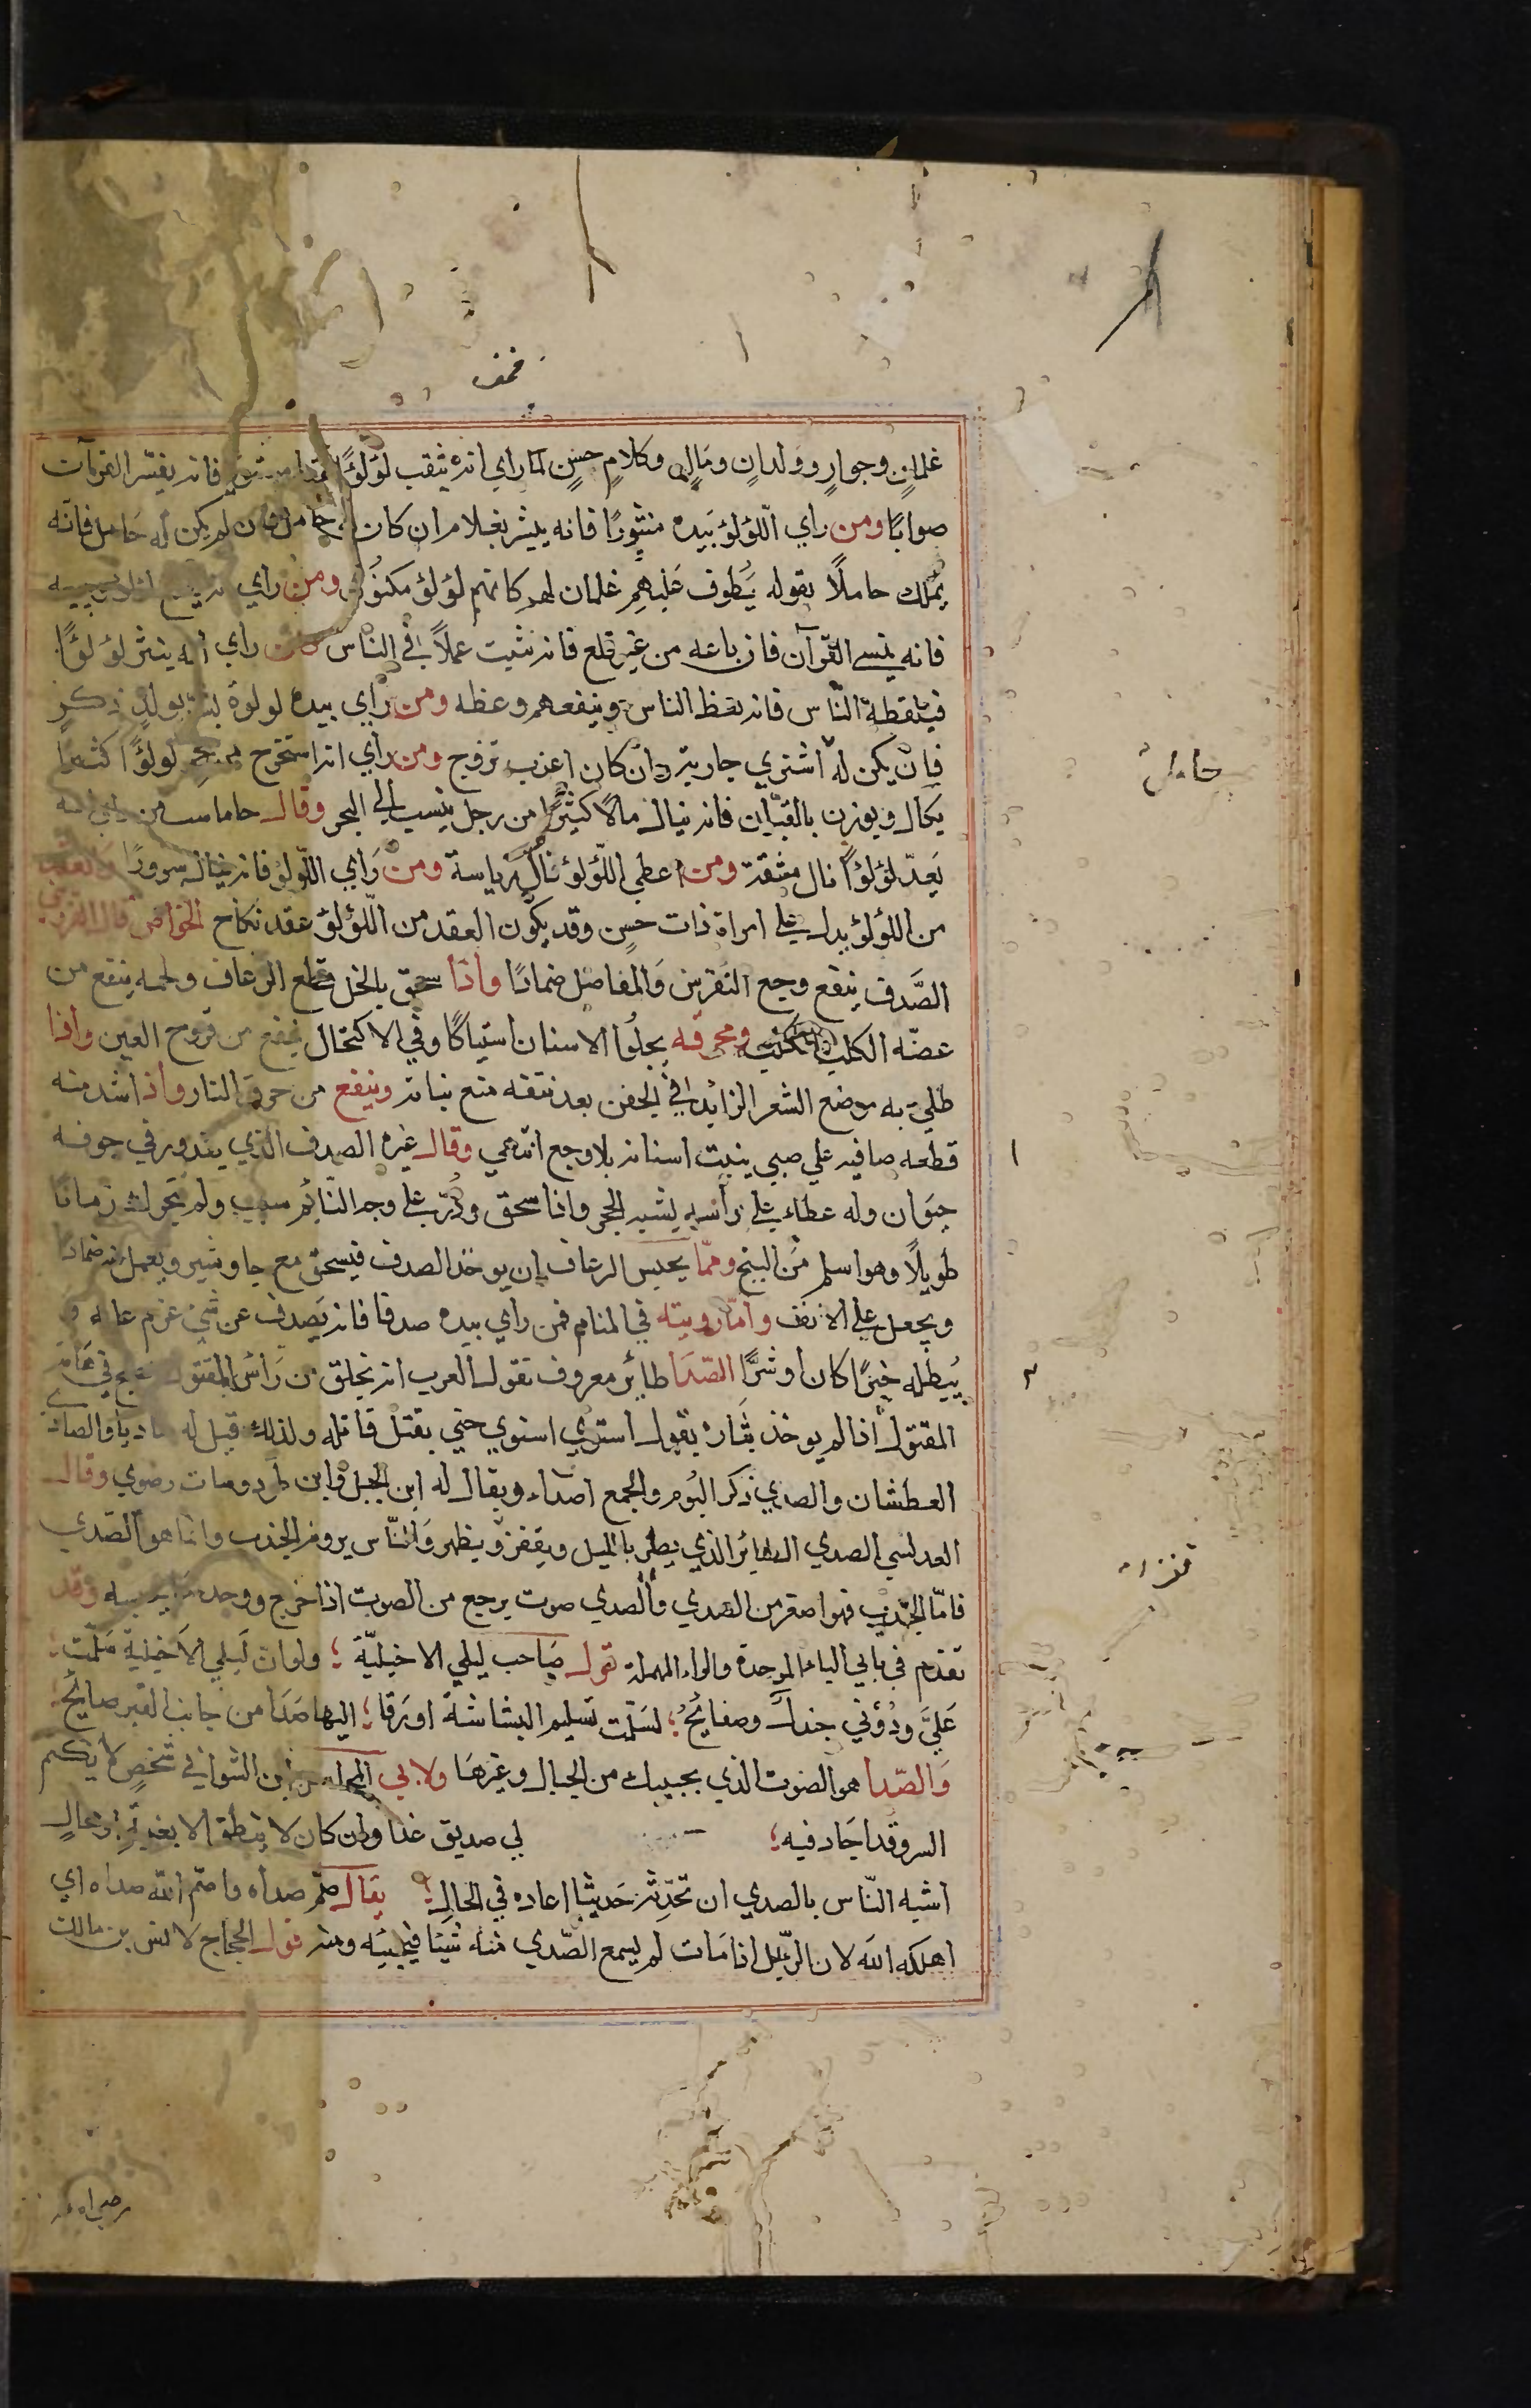 غلمانٍ وجوارٍ وولدانٍ ومالٍ وكلامٍ حسنٍ لما راي انه يثقب لؤلؤًا فانه يفسر القرآت
صوابًا ومن راي اللؤلؤ بيده منثورًا فانه يبشر بغلام ان كان له حامل فان لم يكن له حامل فانه
يملك حاملًا بقوله يَطوف عَليهم غلمان لهم كانهم لؤلؤ مكنون ومن راي
فانه ينسي القرآن فان باعه من غير قلع فانه يثبت عملًا في الناس راي انه ينثر لؤلؤًا
فيلتقطه النّاس فانه يعظ الناس وينفعهم وعظه ومن راي بيده لولوة بشر بولدٍ ذكرٍ
فان يكن له اشتري جارية وان كان اعزب تزوج ومن راي انه استخرج من بحر لولؤًا كثيرًا
يكال ويوزن بالقبّان فانه ينال مالًا كثيرًا من رجل ينسب الي البحر وقال جاماسب من راي انه
يَعدّ لؤلؤًا نال مشقة ومن اعطي اللّؤلؤ نال رياسة ومن رَاي اللّولؤ فانه ينال سرورًا والعقد
من اللؤلؤ يدل علي امراة ذات حسن وقد يكون العقد من اللّؤلؤ عقد نكاح الخواص قال القزويني
الصَّدف ينفع وجع النقرس وَالمفاصل ضمادًا واذا سحق بالخل قطع الرعاف ولحمه ينفع من
عضّه الكلب الكلب ومحرقه يجلُوا الاسنان استياكًا وفي الاكتحال ينفع من قروح العين واذا
طلي به موضع الشعر الزائد في الجفن بعد نتفه منع نباته وينفع من حرق النار واذا شد منه
قطعه صافيه علي صبي ينبت اسنانه بلا وجع انتهي وقال غيره الصدف الذي يتدور في جوفه
حيَوان وله غطاء علي رأسه يشبه الحجر واذا سحق وذرّ علي وجه النّايم سبت ولم يتحرك زمانا
طويلًا وهو اسلم من البنج وممّا يحبس الرعاف ان يوخذ الصدف فيسحق مع جاوشير ويعمل منه ضمادًا
ويجعل علي الانف وامّا رويته في المنام فمن راي بيده صدفا فانه يَصدف عن شي عزم عليه و
يُبطله خيرًا كان او شرًّا الصّدَا طاير معروف تقول العرب انه يخلق من رَاس المقتول يصيح في هَامة
المقتول اذا لم يوخذ بثَاره يقول استوي اسنوي حتي يقتل قاتله ولذلك قيل له صاديا والصاد
العطشان والصدي ذكر البُوم والجمع اصداء ويقال له ابن الجبل وابن طود وبنات رضوي وقال
العدلبي الصدي الطائر الذي يطير بالليل ويقفز ويظهر وَالنّاس يرونه الجندب وانما هو الصّدي
فامّا الجندب فهو اصغر من الصدي والصدي صوت يرجع من الصوت اذا خرج ووجد ما يحبسه وقد
تقدم في بابي الباء الموحدة والراء المهملة قول صَاحب ليلي الاخيليّة ؛ ولو ان لَيلي الاَخيلية سَلّمت ؛
عَليَّ ودُوني جندل وصفايحُ ؛ لسَلّمت تسليم البشاشة او زقا ؛ اليها صَدَا من جانب القبر صايحُ ؛
وَالصّدا هو الصوت الذي يجيبك من الجبال وغيرها ولابي المحاسن بن الشواني في شخصٍ لا يكتم
السر وقد اجَاد فيه ؛ لي صديق غدا وان كان لا ينطق الا بغيبةٍ او محالِ
اشبه النّاس بالصدي ان تحدّثه حَديثا اعاده في الحَالِ ؛ يقال صُمّ صداه واصمّ الله صداه اي
اهلكه الله لان الرّجل اذا مَات لم يسمع الصّدي منه شيئا فيجيبه ومنه قول الحجاج لانس بن مالك
حامل
١
٣